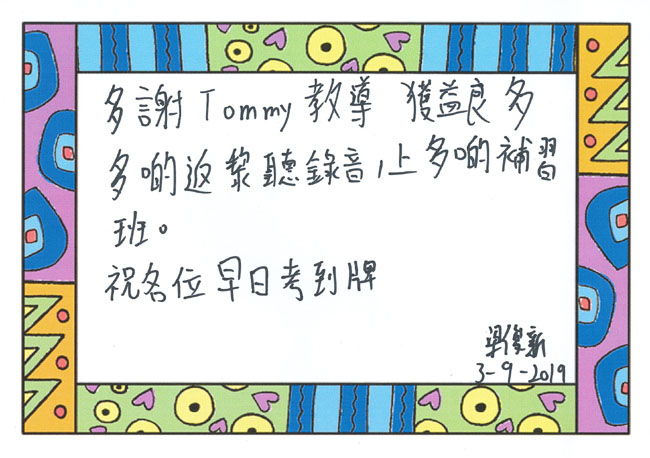 多謝 Tommy 教導 獲益良多
多啲返黎聽錄音,上多啲補習
班。
祝各位早日考到牌
梁俊新
3-9-2019